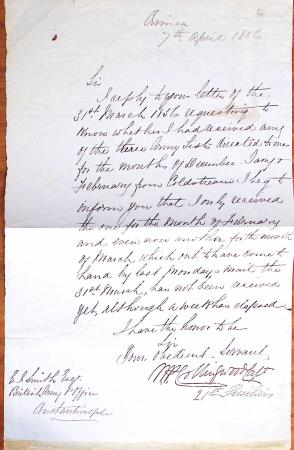 Crimea
7th April 1856
Sir
I reply to your letter of the
31st March 1856 requesting to
Know whether I had received any
of the three Army Lists directed to me
for the months of December Jany &
February from Coldstream I beg to
inform you that I only received
the one for the Month of February
and even now another for the month
of March which out to have come to
hand by last Mondays Mail the
31st March, has not been received
yet, although a week has elapsed.
I have the honor to be
Sir
Your obedient Servant
Collingwood Capt
21st Fusiliers
E J Smith Esqr
British Army P. Office
Constantinople